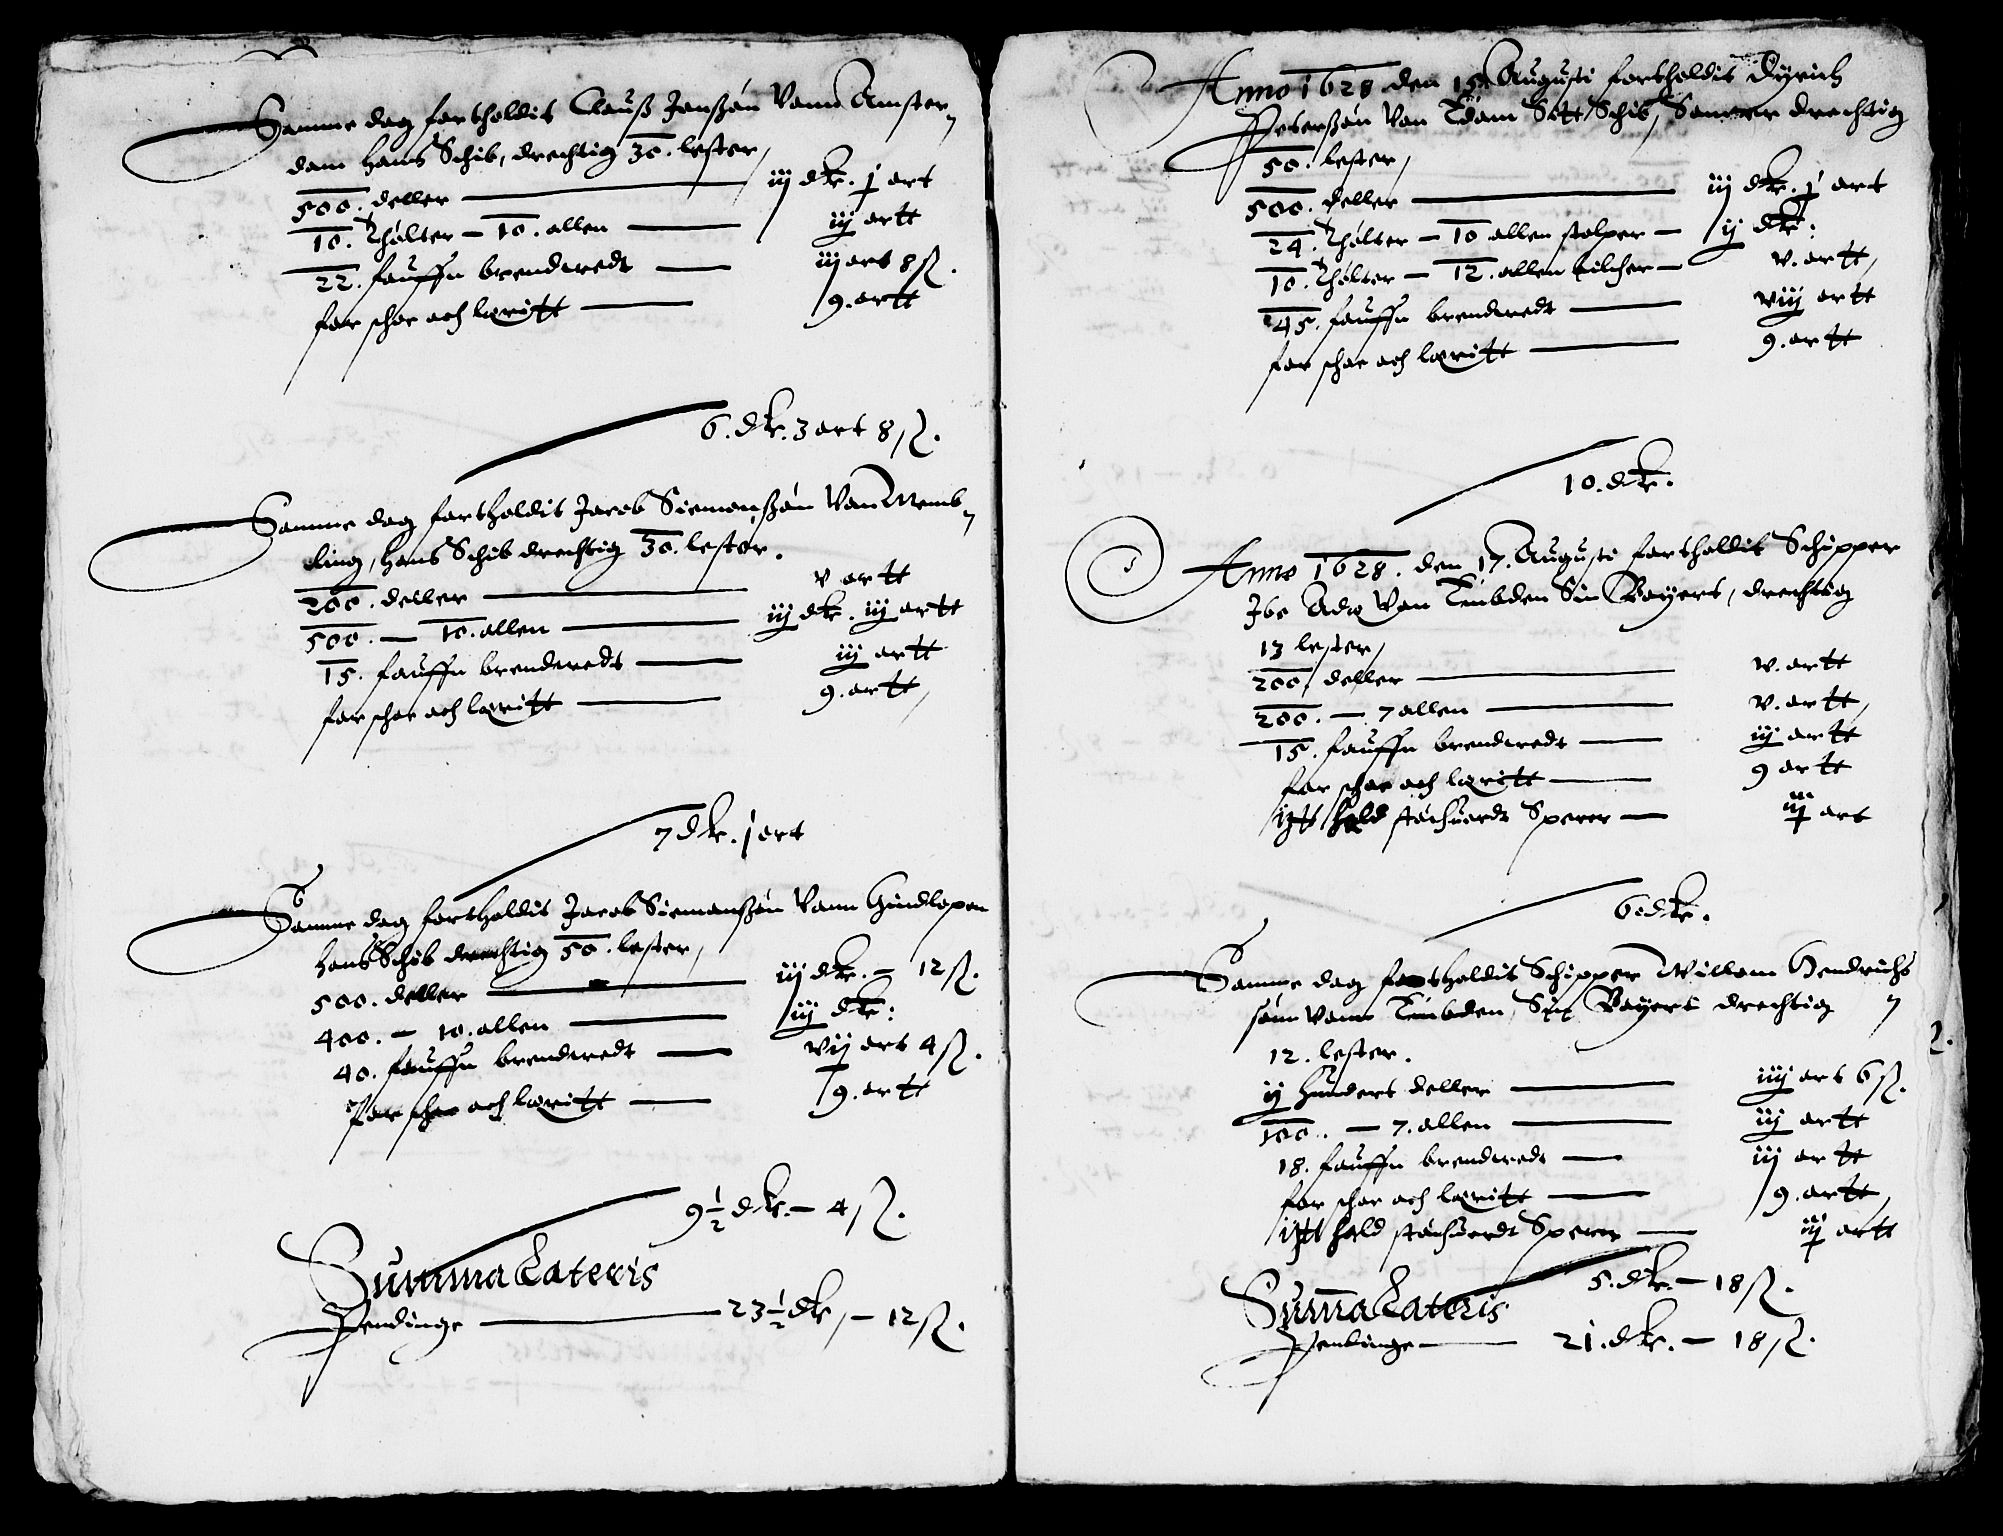 Samme dag fortholdit Clauß Janßøn Vann Amster-
dam hans Schib, drechtig 30. lester,
500. deller — iij dlr. j ort
10. tholter — 10. allen — iij ortt
22. fauffn brenduedt — iij ort 8 ß.
for schoe och loritt — 9. ortt
6. dlr. 3 ort 8 ß.
Samme dag fortholdit Jacob Siemonßøn Van Memb-
ling, hans Schib drechtig 30. lester.
200. deller — v ortt
500. — 10. allen — iij dlr. iij ortt
15. fauffn brenduedt — iij ortt
for schoe och loritt — 9. ortt,
7 dlr. j ort
Samme dag fortholdit Jacob Siemonßøn Vann Hindlopen
hans Schib drechtig 50. lester,
500. deller — iij dlr. — 12 ß.
400. — 10. allen — iij dlr:
40. fauffn brenduedt — vij ort 4 ß.
For schoe och loritt — 9. ortt
9½ dlr. — 4 ß.
Summa Lateris
Pendinge — 23½ dlr, — 12 ß.
Anno 1628 den 15 Augusti fortholdit Dyrich
Peterßøn Van Edam Sitt Schib, drechtig
50. lester,
500. deller — iij dlr. j ort
24. tholter — 10 allen stolper — ij dlr:
10. tholter — 12. allen — v. ortt,
45. fauffn brenduedt — viij ortt
for schoe och loritt — 9. ortt
10. dlr.
Anno 1628. den 17. Augusti fortholdit Schipper
Ibe Van Embden Sin Boyert, drechtig
13 lester,
200. deller — v. ortt
200. — 7 allen — v. ortt,
15. fauffn brenduedt — iij ortt
for schoe och loritt — 9 ortt
hold Sperer — iij ort
6. dlr.
Samme dag fortholdit Schipper Willom Hendrichs-
søn Vann Embden, Sin Boyert drechtig
12. lester.
ij Hundert deller — iiij ort 6 ß.
100. — 7. allen — iij ortt
18. fauffn brenduedt — iij ortt
for schoe och loritt — 9. ortt,
hold Sperer — iij ortt
5. dlr. — 18 ß.
Summa Lateris
Penninge — 21. dlr. — 18 ß.